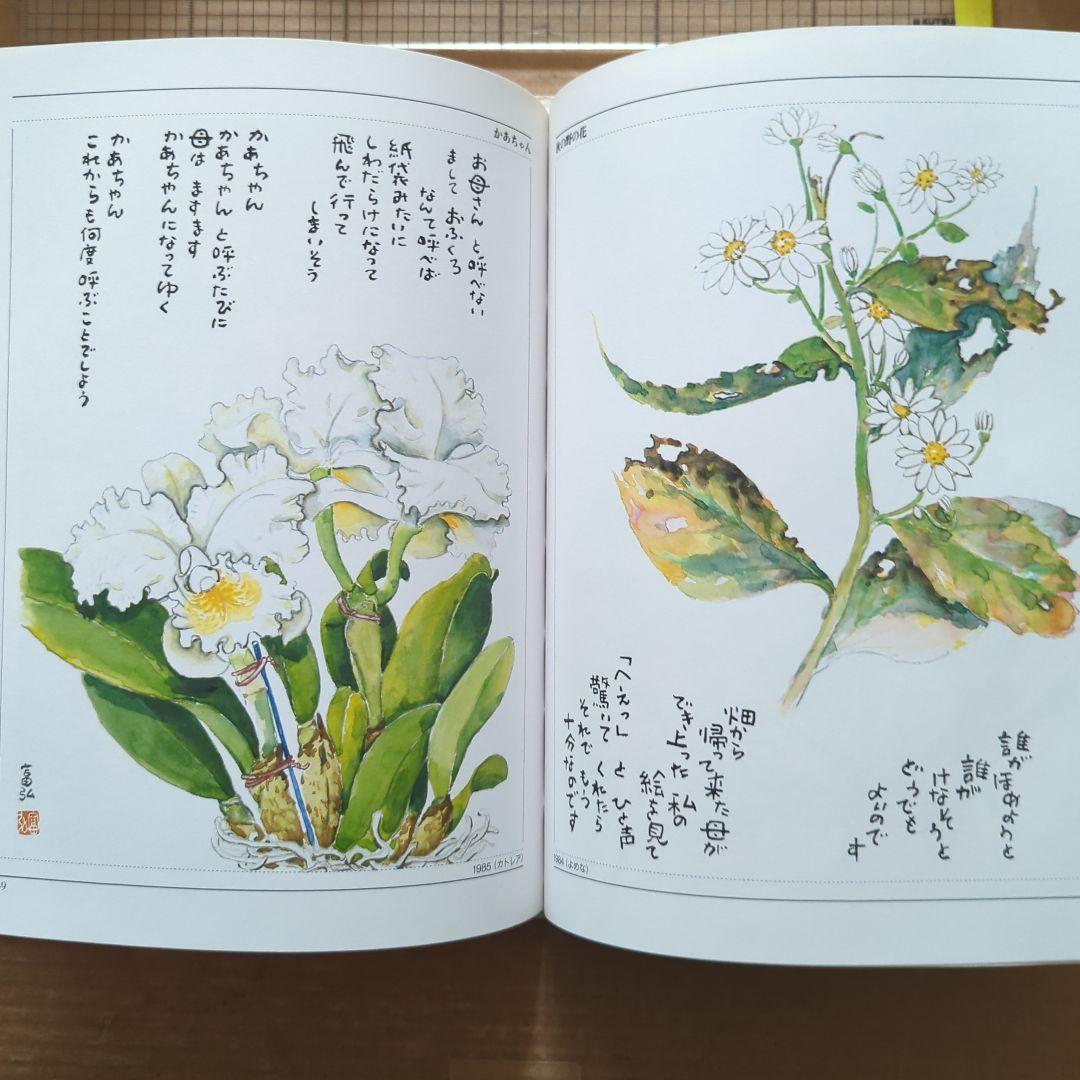 秋の野の花
誰がほめようと
誰が
けなそうと
どうでも
よいのです
畑から
帰って来た母が
でき上った 私の
絵を見て
「へえっ」 と ひと声
驚いて くれたら
それで もう
十分なのです
1984 (よめな)
かあちゃん
お母さん と呼べない
まして おふくろ
なんて呼べば
紙袋みたいに
しわだらけになって
飛んで行って
しまいそう
かあちゃん
かあちゃん と呼ぶたびに
母は ますます
かあちゃんになってゆく
かあちゃん
これからも何度 呼ぶことでしょう
富弘
1985 (カトレア)